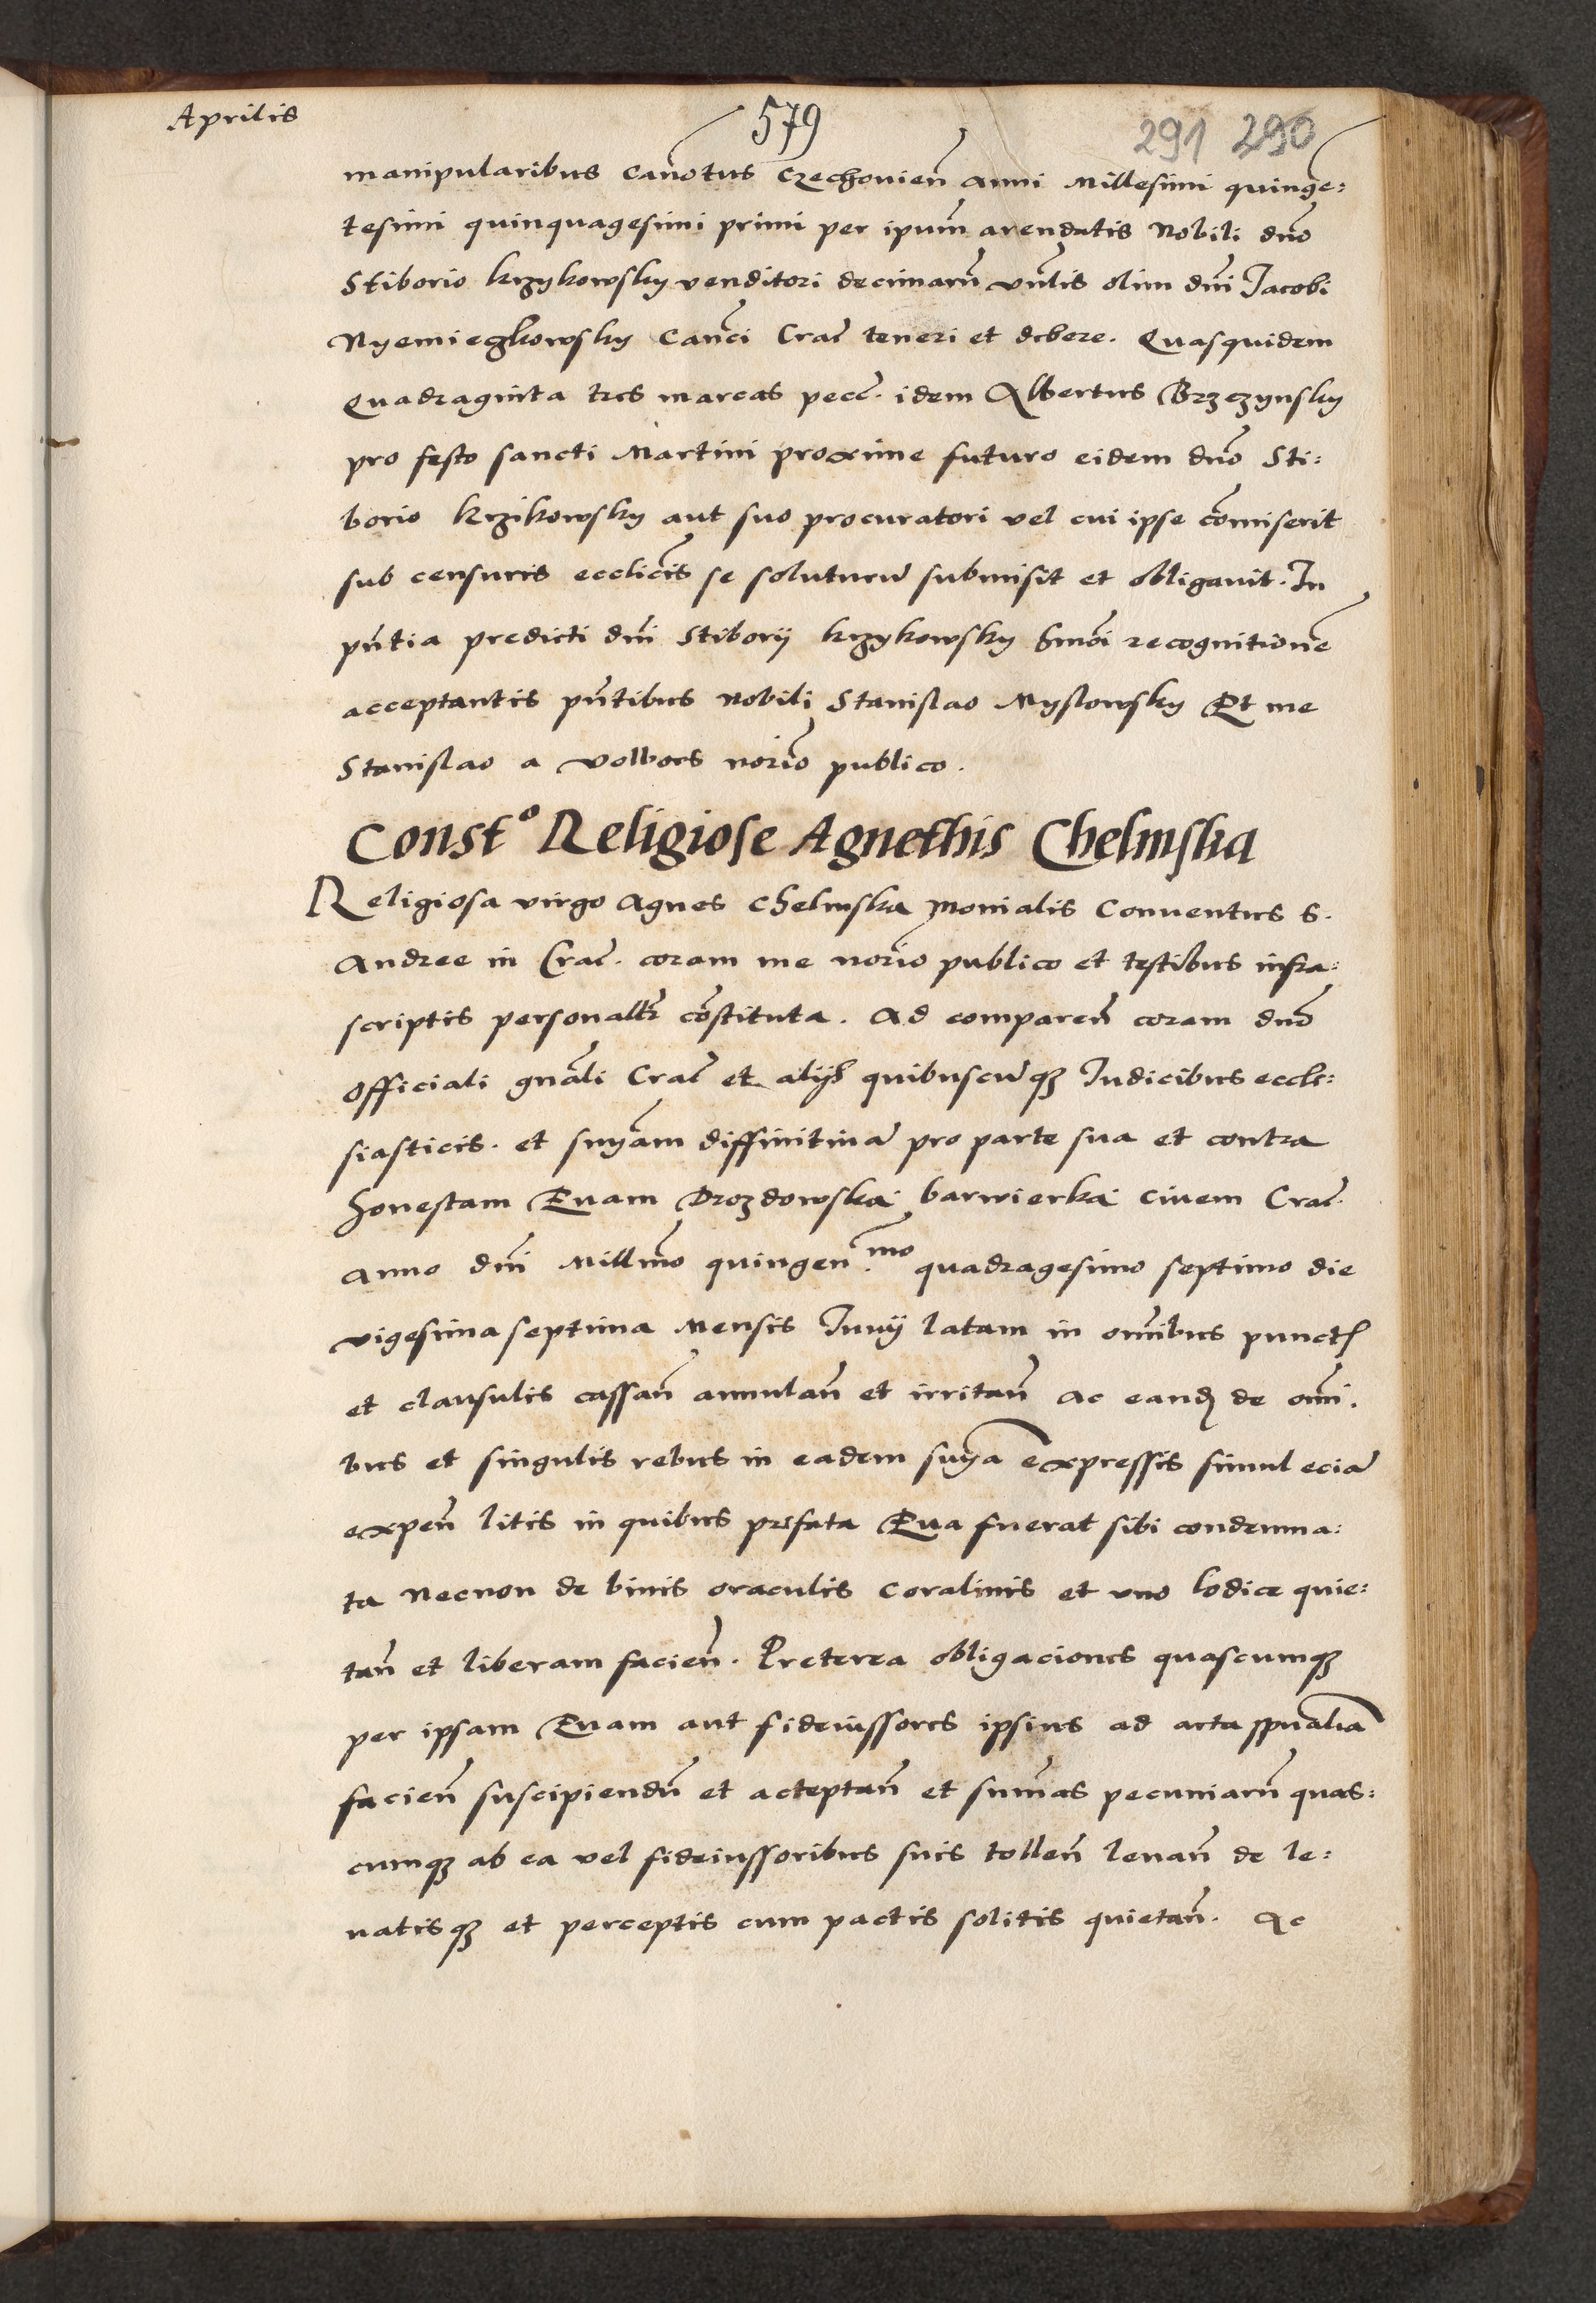 Aprilis
579
291 290
manipularibus Canōtus Czechouien̄ anni Millesimi quinge:
tesimi quinquagesimi primi per ipum̄ arendatis Nobili dn̄o
Stiborio Krzykowsky venditori decimarū vn̄lis olim dn̄i Jacobi
Nyemieglowsky Canc̄i Crac̄ teneri et debere. Quasquidem
Quadraginta tres marcas pecc̄. idem Albertus Brzezynsky
pro festo sancti Martini proxime futuro eidem dn̄o Sti:
borio Krzikowsky aut suo procuratori vel cui ipse cōmiserit
sub censuris ecclicīs se soluturū submisit et obligauit. In
pn̄tia predicti dn̄i Stiborij Krzykowsky hmōi recognitionē
acceptantis pn̄tibus Nobili Stanislao Myslowsky Et me
Stanislao a volbors norīo publico.
Constᵒ Religiose Agnethis Chelmska
Religiosa virgo Agnes Chelmska Monialis Conuentus S.
Andree in Crac̄. coram me norīo publico et testibus infra:
scriptis personallr̄ cōstituta. Ad comparen̄ coram dn̄o
officiali gnāli Crac̄ et alijs quibuscūqꝫ Iudicibus eccle:
siasticis. et snyām diffinitiuā pro parte sua et contra
honestam Euam Drozdowską barwierką ciuem Crac̄.
Anno dn̄i Millmo quingen.mo quadragesimo septimo die
vigesima septima Mensis Iunij latam in omībus punctꝭ
et clausulis cassan̄ annulan̄ et irritan̄ ac eandꝫ de omī.
bus et singulis rebus in eadem snyā expressis simul eciā
expen̄ litis in quibus prefata Eua fuerat sibi condemna:
ta Necnon de binis oraculis Coralinis et vno lodice quie:
tan̄ et liberam facien̄. Preterea obligaciones quascumqꝫ
per ipsam Euam aut fideiussores ipsius ad acta spualia
facien̄ suscipiendū et acceptan̄ et sum̄as pecuniarū quas:
cumqꝫ ab ea vel fideiussoribus suis tollen̄ leuan̄ de le:
uatisqꝫ et perceptis cum pactis solitis quietan̄. Ac